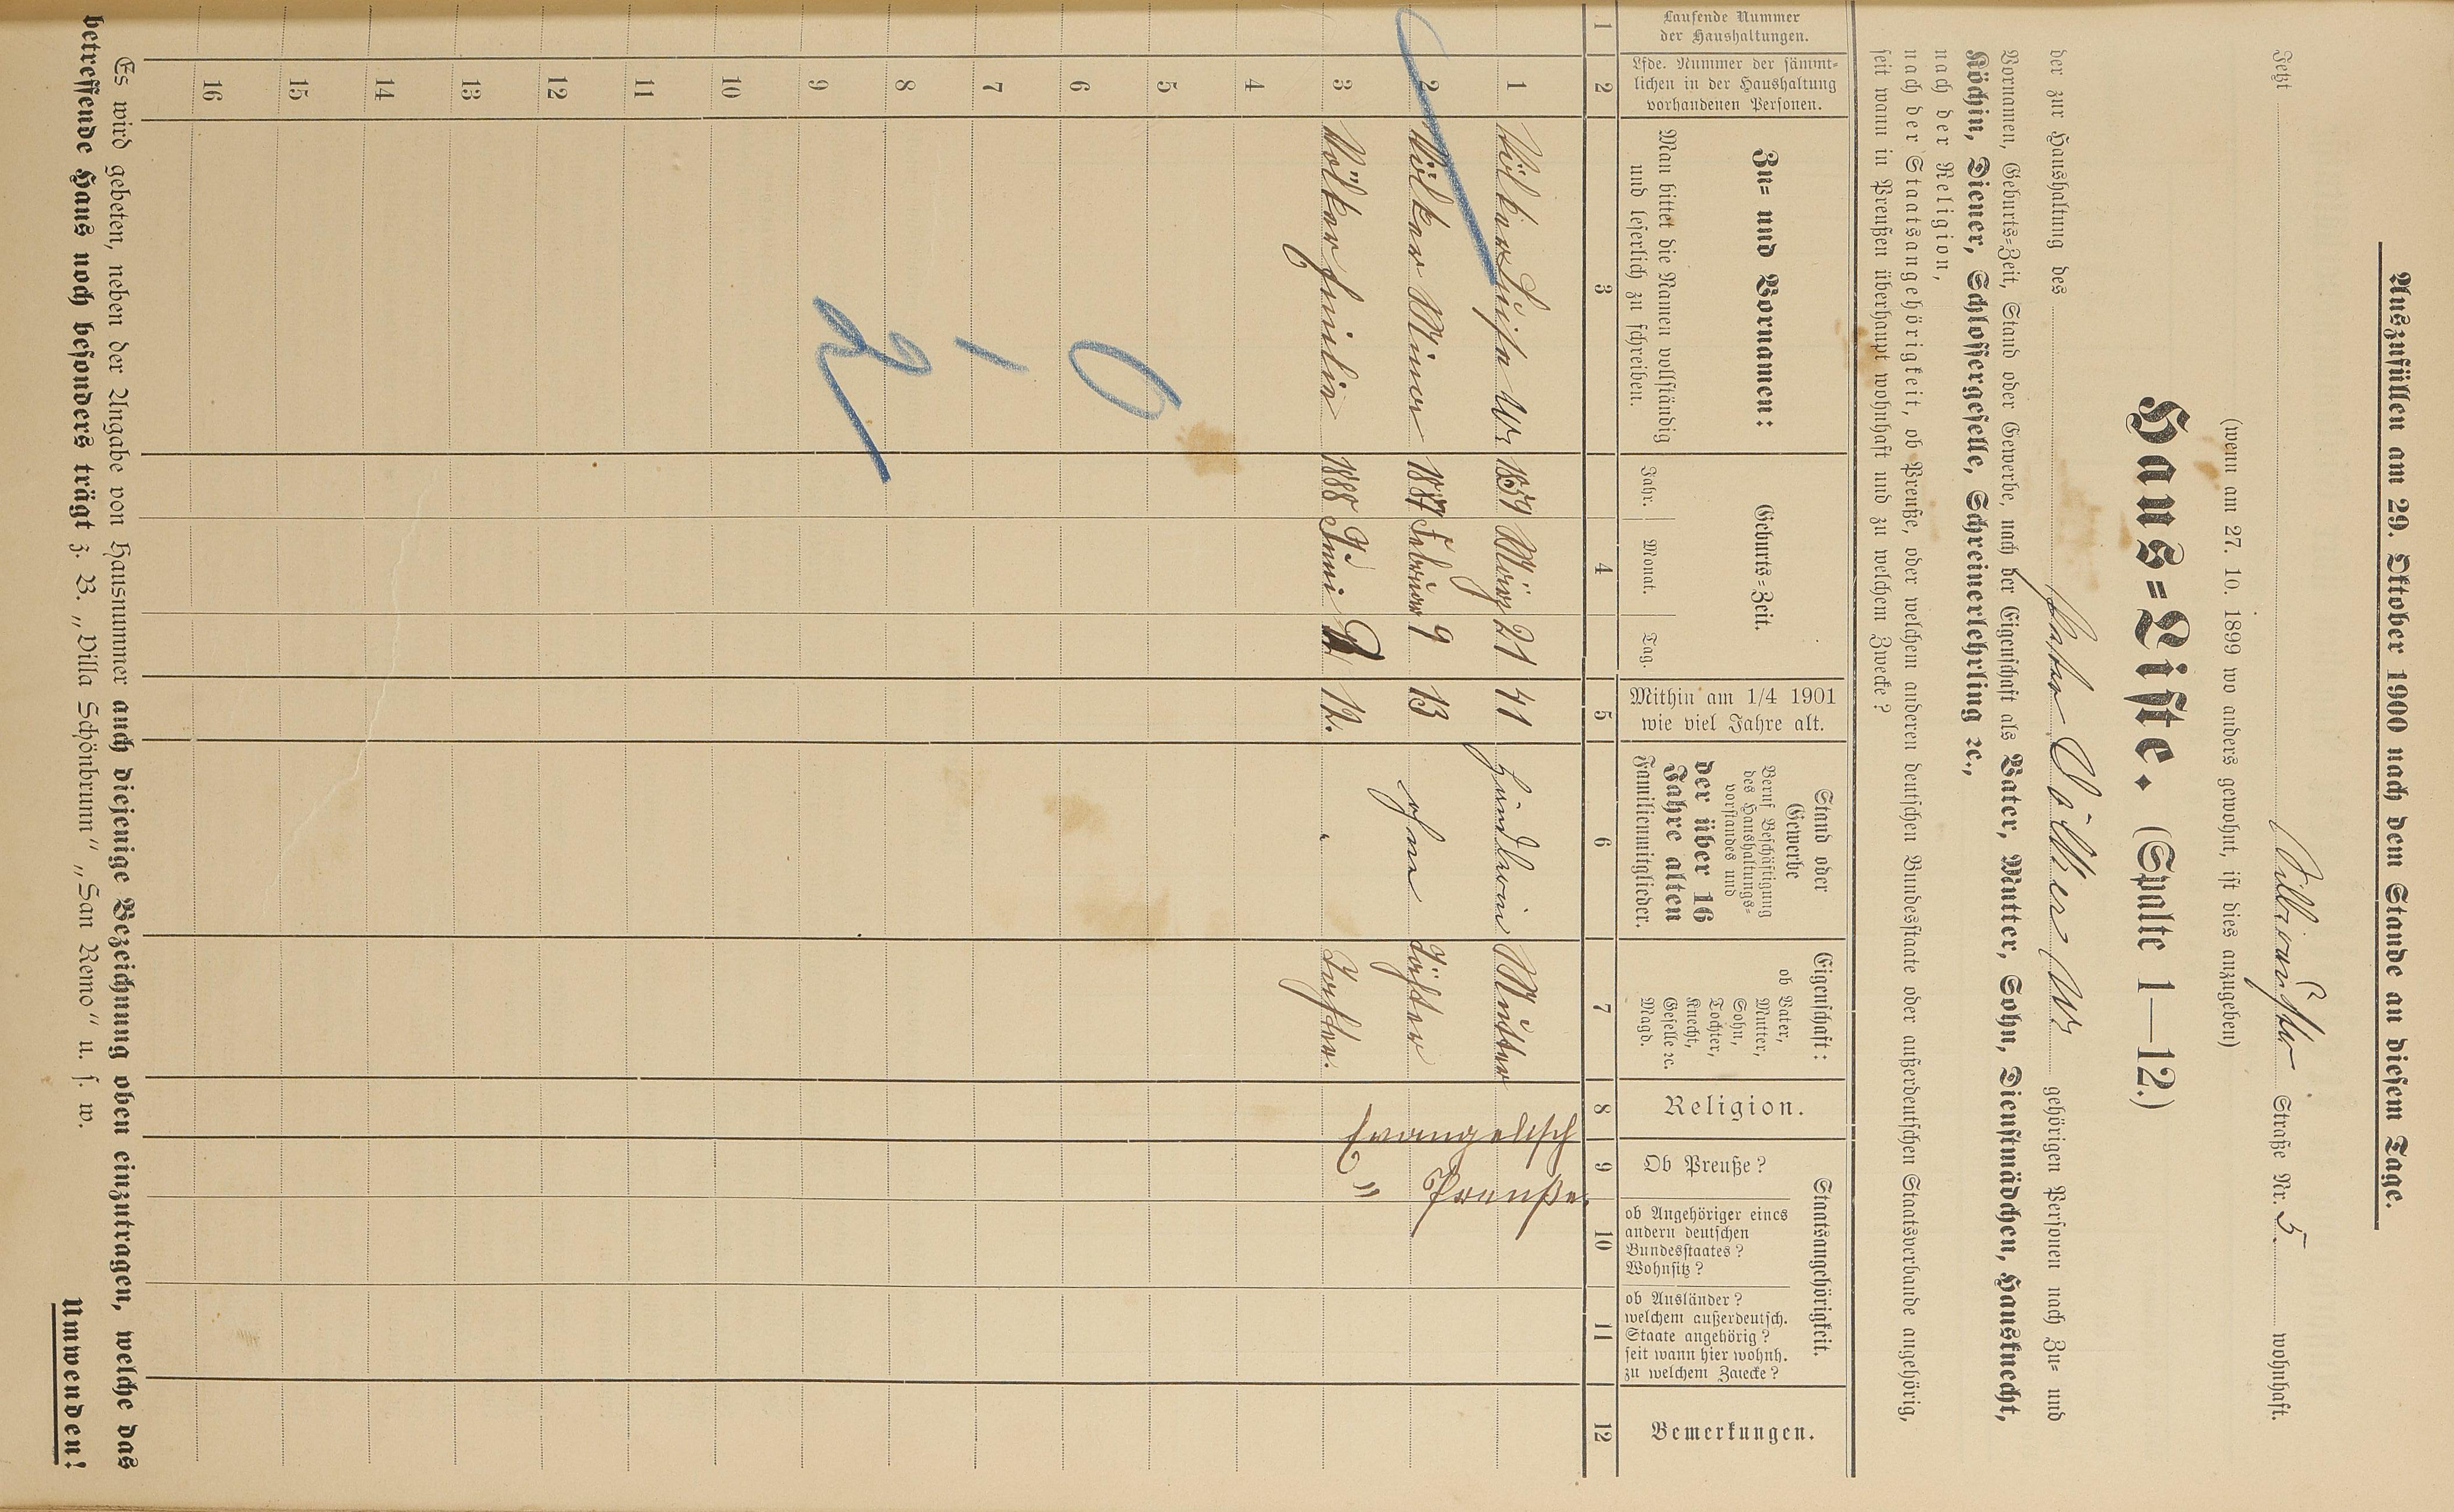 Auszufüllen am 29. Oktober 1900 nach dem Stande an diesem Tage.
Jetzt Straße Nr. 5 wohnhaft.
(wenn am 27. 10. 1899 wo anders gewohnt, ist dies anzugeben)
Haus=Liste. (Spalte 1—12.)
der zur Haushaltung des Peter Völker Ww gehörigen Personen nach Zu= und
Vornamen, Geburts=Zeit, Stand oder Gewerbe, nach der Eigenschaft als Vater, Mutter, Sohn, Dienstmädchen, Hausknecht,
Köchin, Diener, Schlossergeselle, Schreinerlehrling ec.,
nach der Religion,
nach der Staatsangehörigkeit, ob Preuße, oder welchem anderen deutschen Bundesstaate oder außerdeutschen Staatsverbande angehörig,
seit wann in Preußen überhaupt wohnhaft und zu welchem Zwecke?
Laufende Nummer
der Haushaltungen.
Lfde. Nummer der sämmt=
lichen in der Haushaltung
vorhandenen Personen.
Zu= und Vornamen:
Man bittet die Namen vollständig
und leserlich zu schreiben.
Geburts=Zeit.
Jahr. Monat. Tag.
Mithin am 1/4 1901
wie viel Jahre alt.
Stand oder
Gewerbe
Beruf Beschäftigung
des Haushaltungs=
vorstandes und
der über 16
Jahre alten
Familienmitglieder.
Eigenschaft:
ob Vater,
Mutter,
Sohn,
Tochter,
Knecht,
Geselle ec.
Magd.
Religion.
Staatsangehörigkeit.
Ob Preuße?
ob Angehöriger eines
andern deutschen
Bundesstaates?
Wohnsitz?
ob Ausländer?
welchem außerdeutsch.
Staate angehörig?
seit wann hier wohnh.
zu welchem Zwecke?
Bemerkungen.
1 2 3 4 5 6 7 8 9 10 11 12
1 Völker Luise Ww 1859 März 21 41 Mutter Evangelisch Preuße
2 Völker Minna 1887 Februar 9 13 ohne Tochter
3 Völker 1888 Juni 12. Tochter. "
4
5
6
7
8
9
10
11
12
13
14
15
16
0
1
2
Es wird gebeten, neben der Angabe von Hausnummer auch diejenige Bezeichnung oben einzutragen, welche das
betreffende Haus noch besonders trägt z. B. „Villa Schönbrunn" „San Remo" u. s. w.
Umwenden!